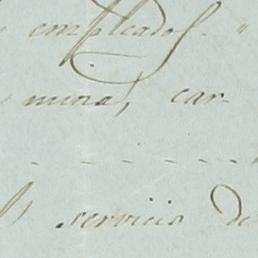 empleados. "
mina, car-
servicio de